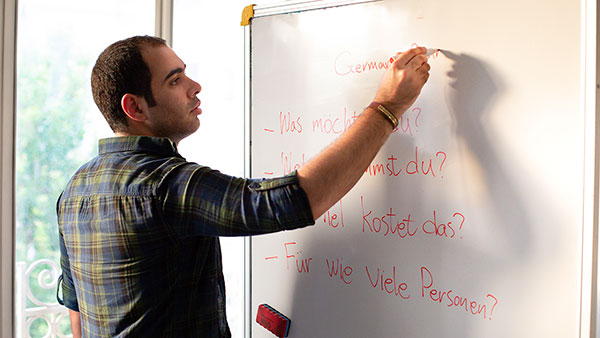 German
- Was möchtest du?
- kommst du?
kostet das?
- Für wie viele Personen?